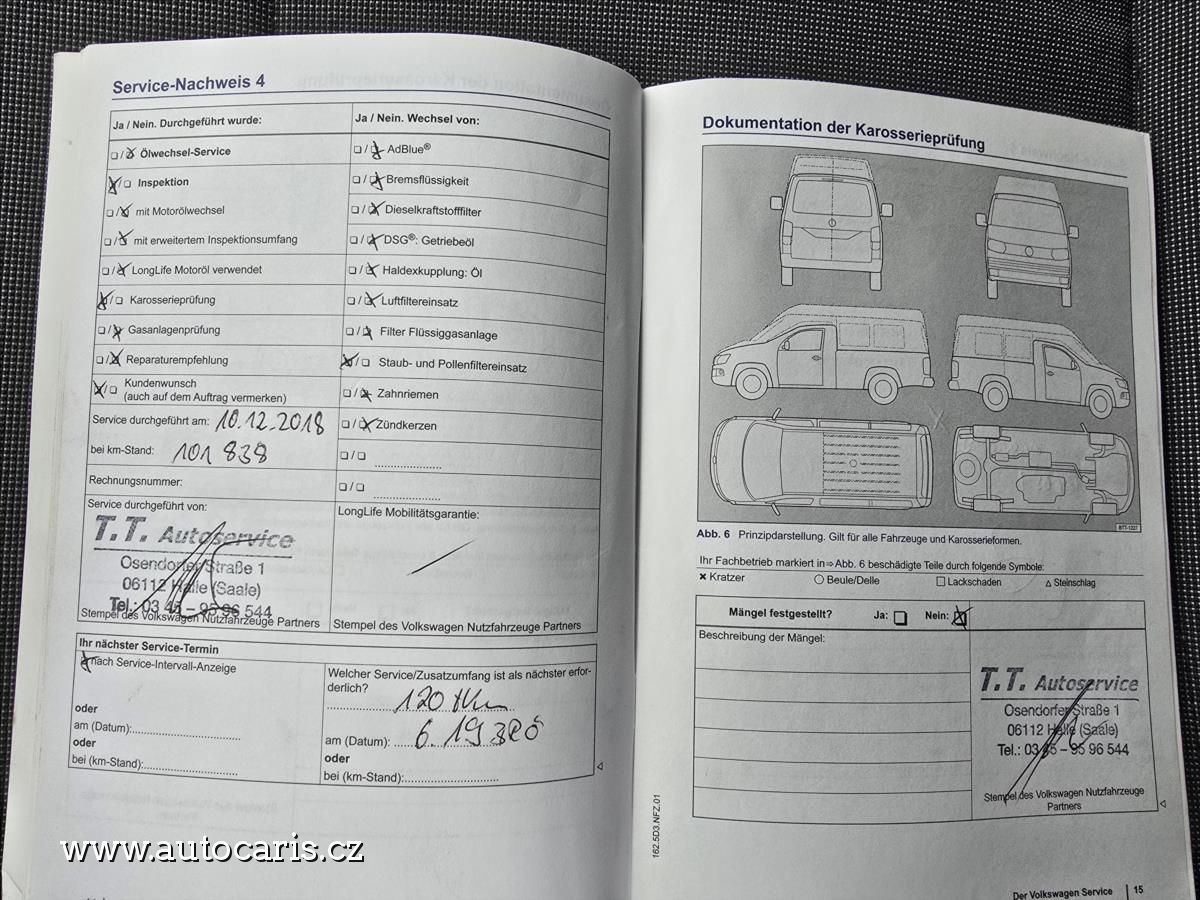 Service-Nachweis 4
Ja / Nein. Durchgeführt wurde:
Ölwechsel-Service
Inspektion
mit Motorölwechsel
mit erweitertem Inspektionsumfang
LongLife Motoröl verwendet
Karosserieprüfung
Gasanlagenprüfung
Reparaturempfehlung
Kundenwunsch
(auch auf dem Auftrag vermerken)
Service durchgeführt am: 10.12.2018
bei km-Stand: 101 838
Rechnungsnummer:
Service durchgeführt von:
T.T. Autoservice
Osendorfer Straße 1
06112 Halle (Saale)
Tel.: 03 45 – 95 96 544
Stempel des Volkswagen Nutzfahrzeuge Partners
Ja / Nein. Wechsel von:
AdBlue®
Bremsflüssigkeit
Dieselkraftstofffilter
DSG®: Getriebeöl
Haldexkupplung: Öl
Luftfiltereinsatz
Filter Flüssiggasanlage
Staub- und Pollenfiltereinsatz
Zahnriemen
Zündkerzen
LongLife Mobilitätsgarantie:
Stempel des Volkswagen Nutzfahrzeuge Partners
Ihr nächster Service-Termin
nach Service-Intervall-Anzeige
oder
am (Datum):
oder
bei (km-Stand):
Welcher Service/Zusatzumfang ist als nächster erfor-
derlich?
120 tkm
am (Datum): 6.19
oder
bei (km-Stand):
www.autocaris.cz
Dokumentation der Karosserieprüfung
BTT-1227
Abb. 6 Prinzipdarstellung. Gilt für alle Fahrzeuge und Karosserieformen.
Ihr Fachbetrieb markiert in⇒Abb. 6 beschädigte Teile durch folgende Symbole:
× Kratzer ○ Beule/Delle □ Lackschaden △ Steinschlag
Mängel festgestellt? Ja: Nein:
Beschreibung der Mängel:
T.T. Autoservice
Osendorfer Straße 1
06112 Halle (Saale)
Tel.: 03 45 – 95 96 544
Stempel des Volkswagen Nutzfahrzeuge
Partners
162.5D3.NFZ.01
Der Volkswagen Service 15